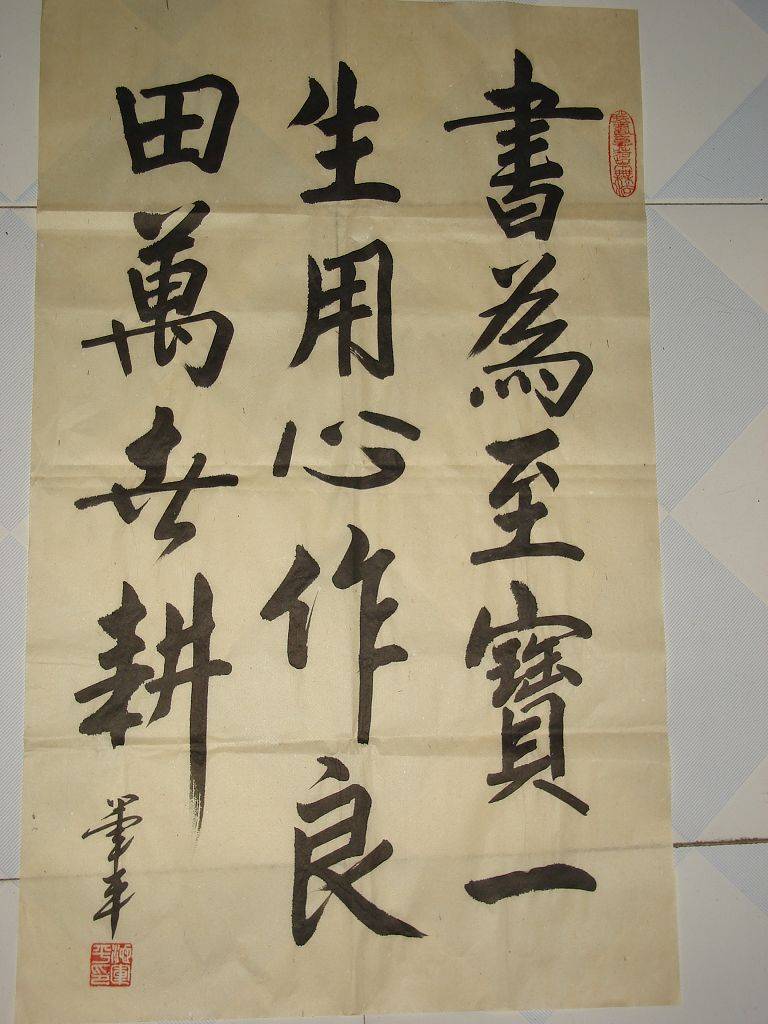 書為至寶一
生用心作良
田萬世耕